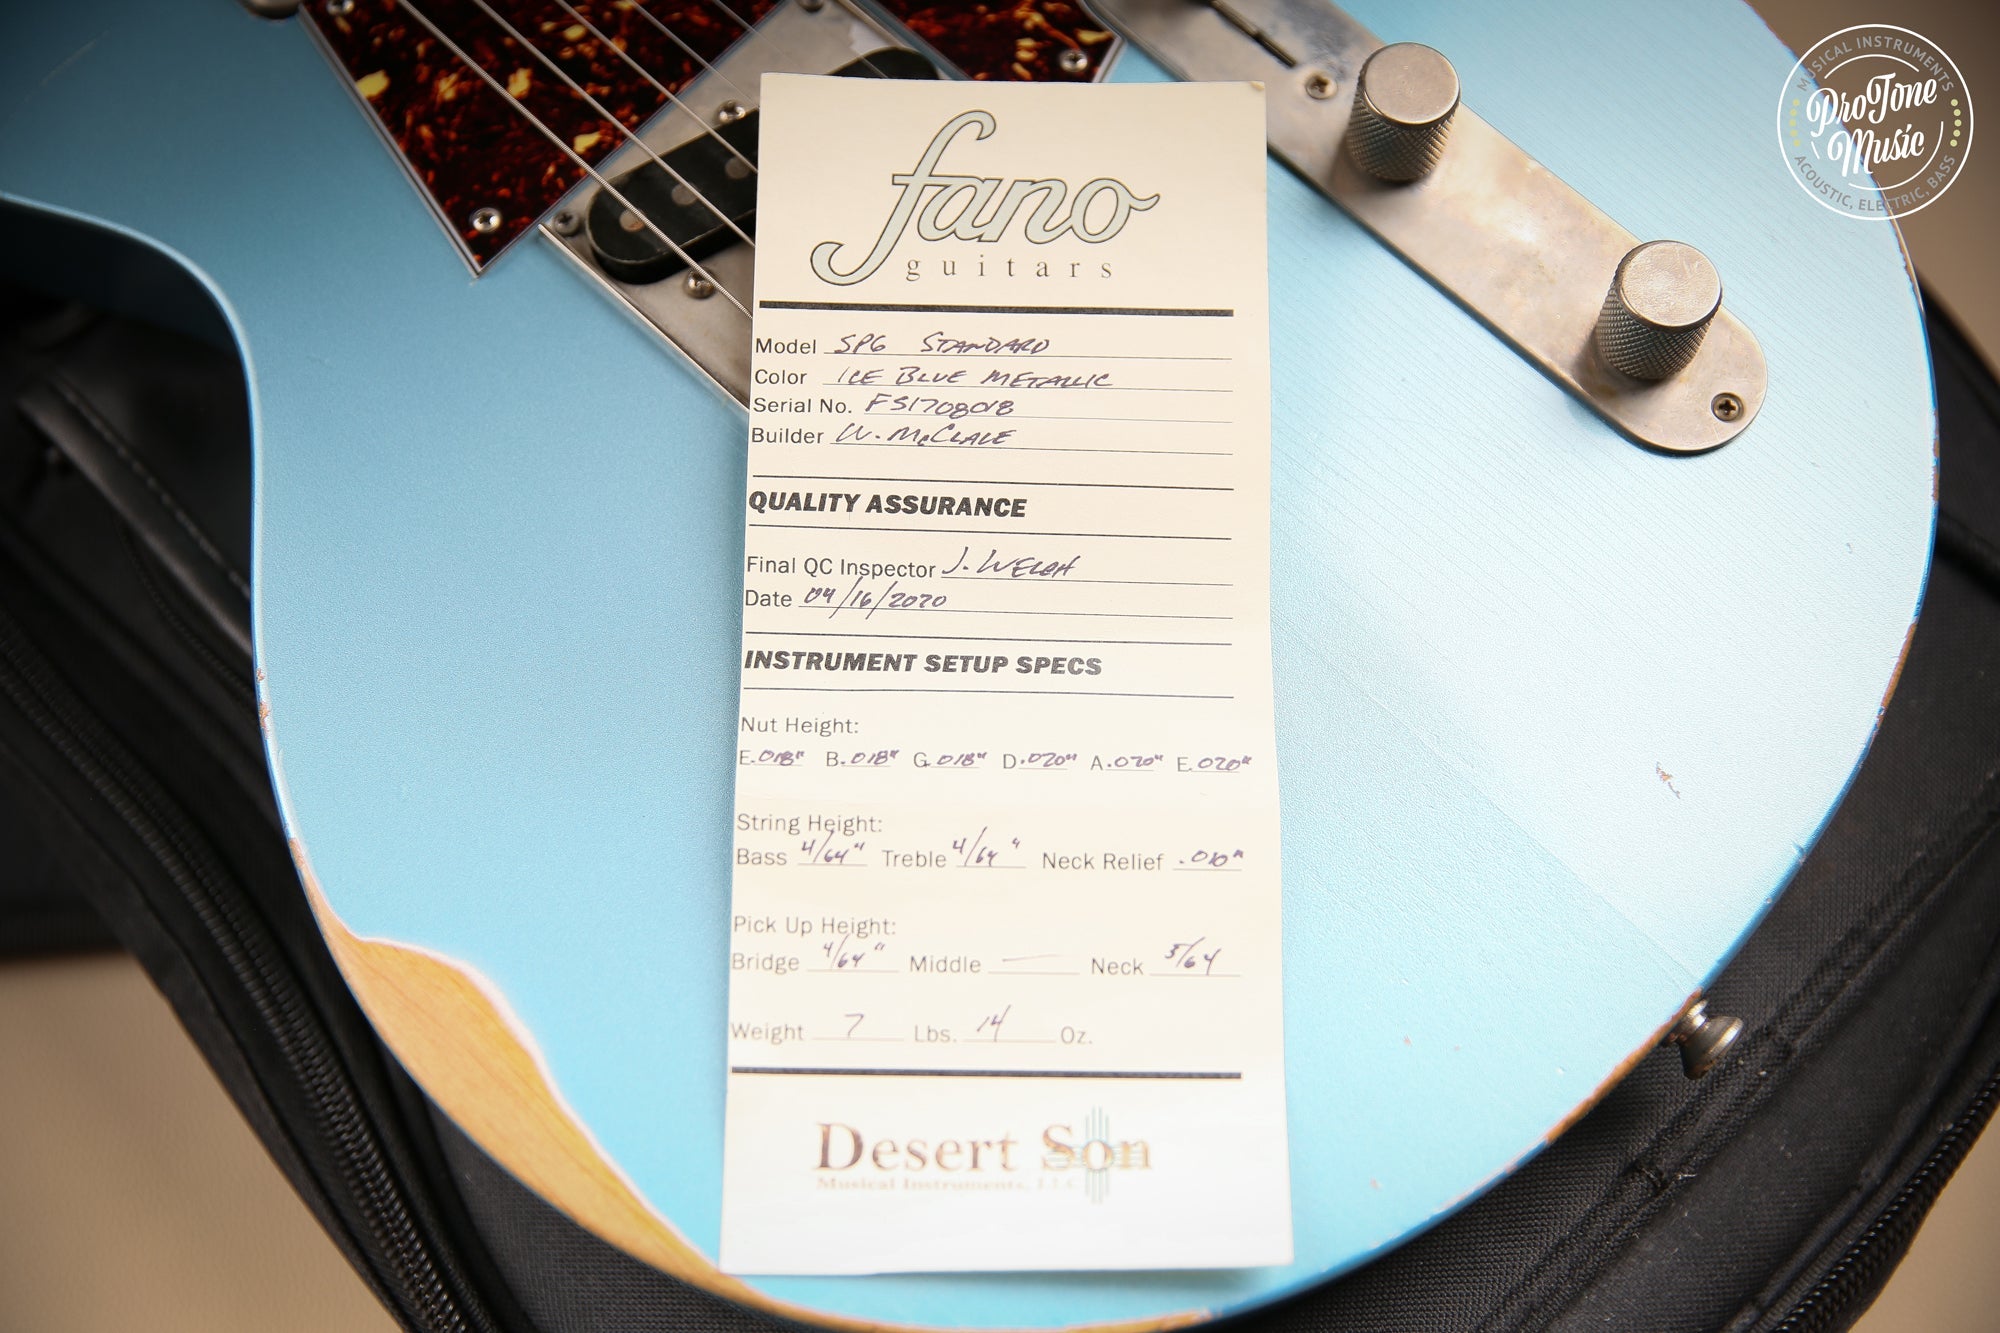 MUSICAL INSTRUMENTS
ProTone
Music
ACOUSTIC, ELECTRIC, BASS
fano
guitars
Model SP6 STANDARD
Color ICE BLUE METALLIC
Serial No. FS1708018
Builder W. McCLACE
QUALITY ASSURANCE
Final QC Inspector J. WELCH
Date 04/16/2020
INSTRUMENT SETUP SPECS
Nut Height:
E .018" B .018" G .018" D .020" A .020" E .020"
String Height:
Bass 4/64" Treble 4/64" Neck Relief .010"
Pick Up Height:
Bridge 4/64" Middle — Neck 5/64
Weight 7 Lbs. 14 Oz.
Desert Son
Musical Instruments, LLC